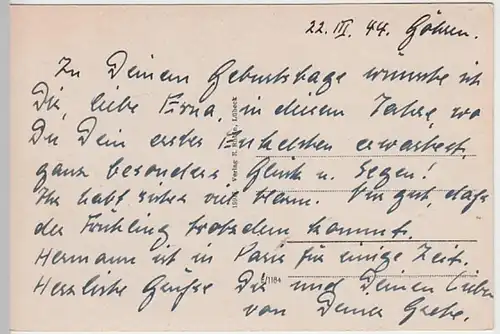 22. III. 44. Göhren.
Zu Deinem Geburtstage wünsche ich
Dir, liebe Erna, in diesem Jahre, wo
Du Dein erstes Enkelchen erwartest,
ganz besonders Glück u. Segen!
Ihr habt sicher viel Nur gut, dass
der Frühling trotzdem kommt.
Hermann ist in Paris für einige Zeit.
Herzliche Grüsse Dir und Deinen Lieben
von Deiner Grete.
Verlag Lübeck